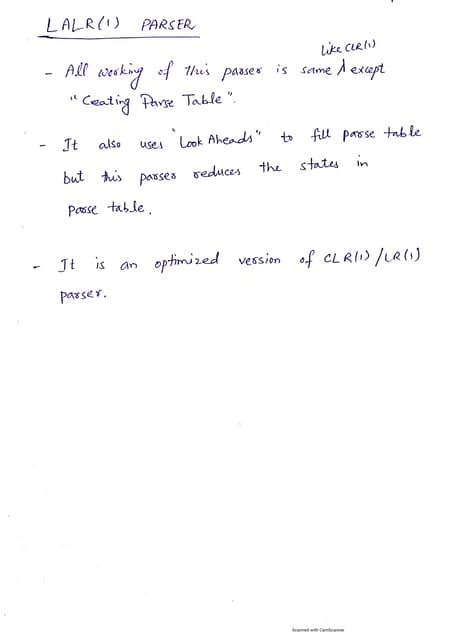 LALR(1) PARSER
Like CLR(1)
- All working of this parser is same ∧ except
"Creating Parse Table".
- It also uses "Look Aheads" to fill parse table
but this parser reduces the states in
parse table.
- It is an optimized version of CLR(1)/LR(1)
parser.
Scanned with CamScanner